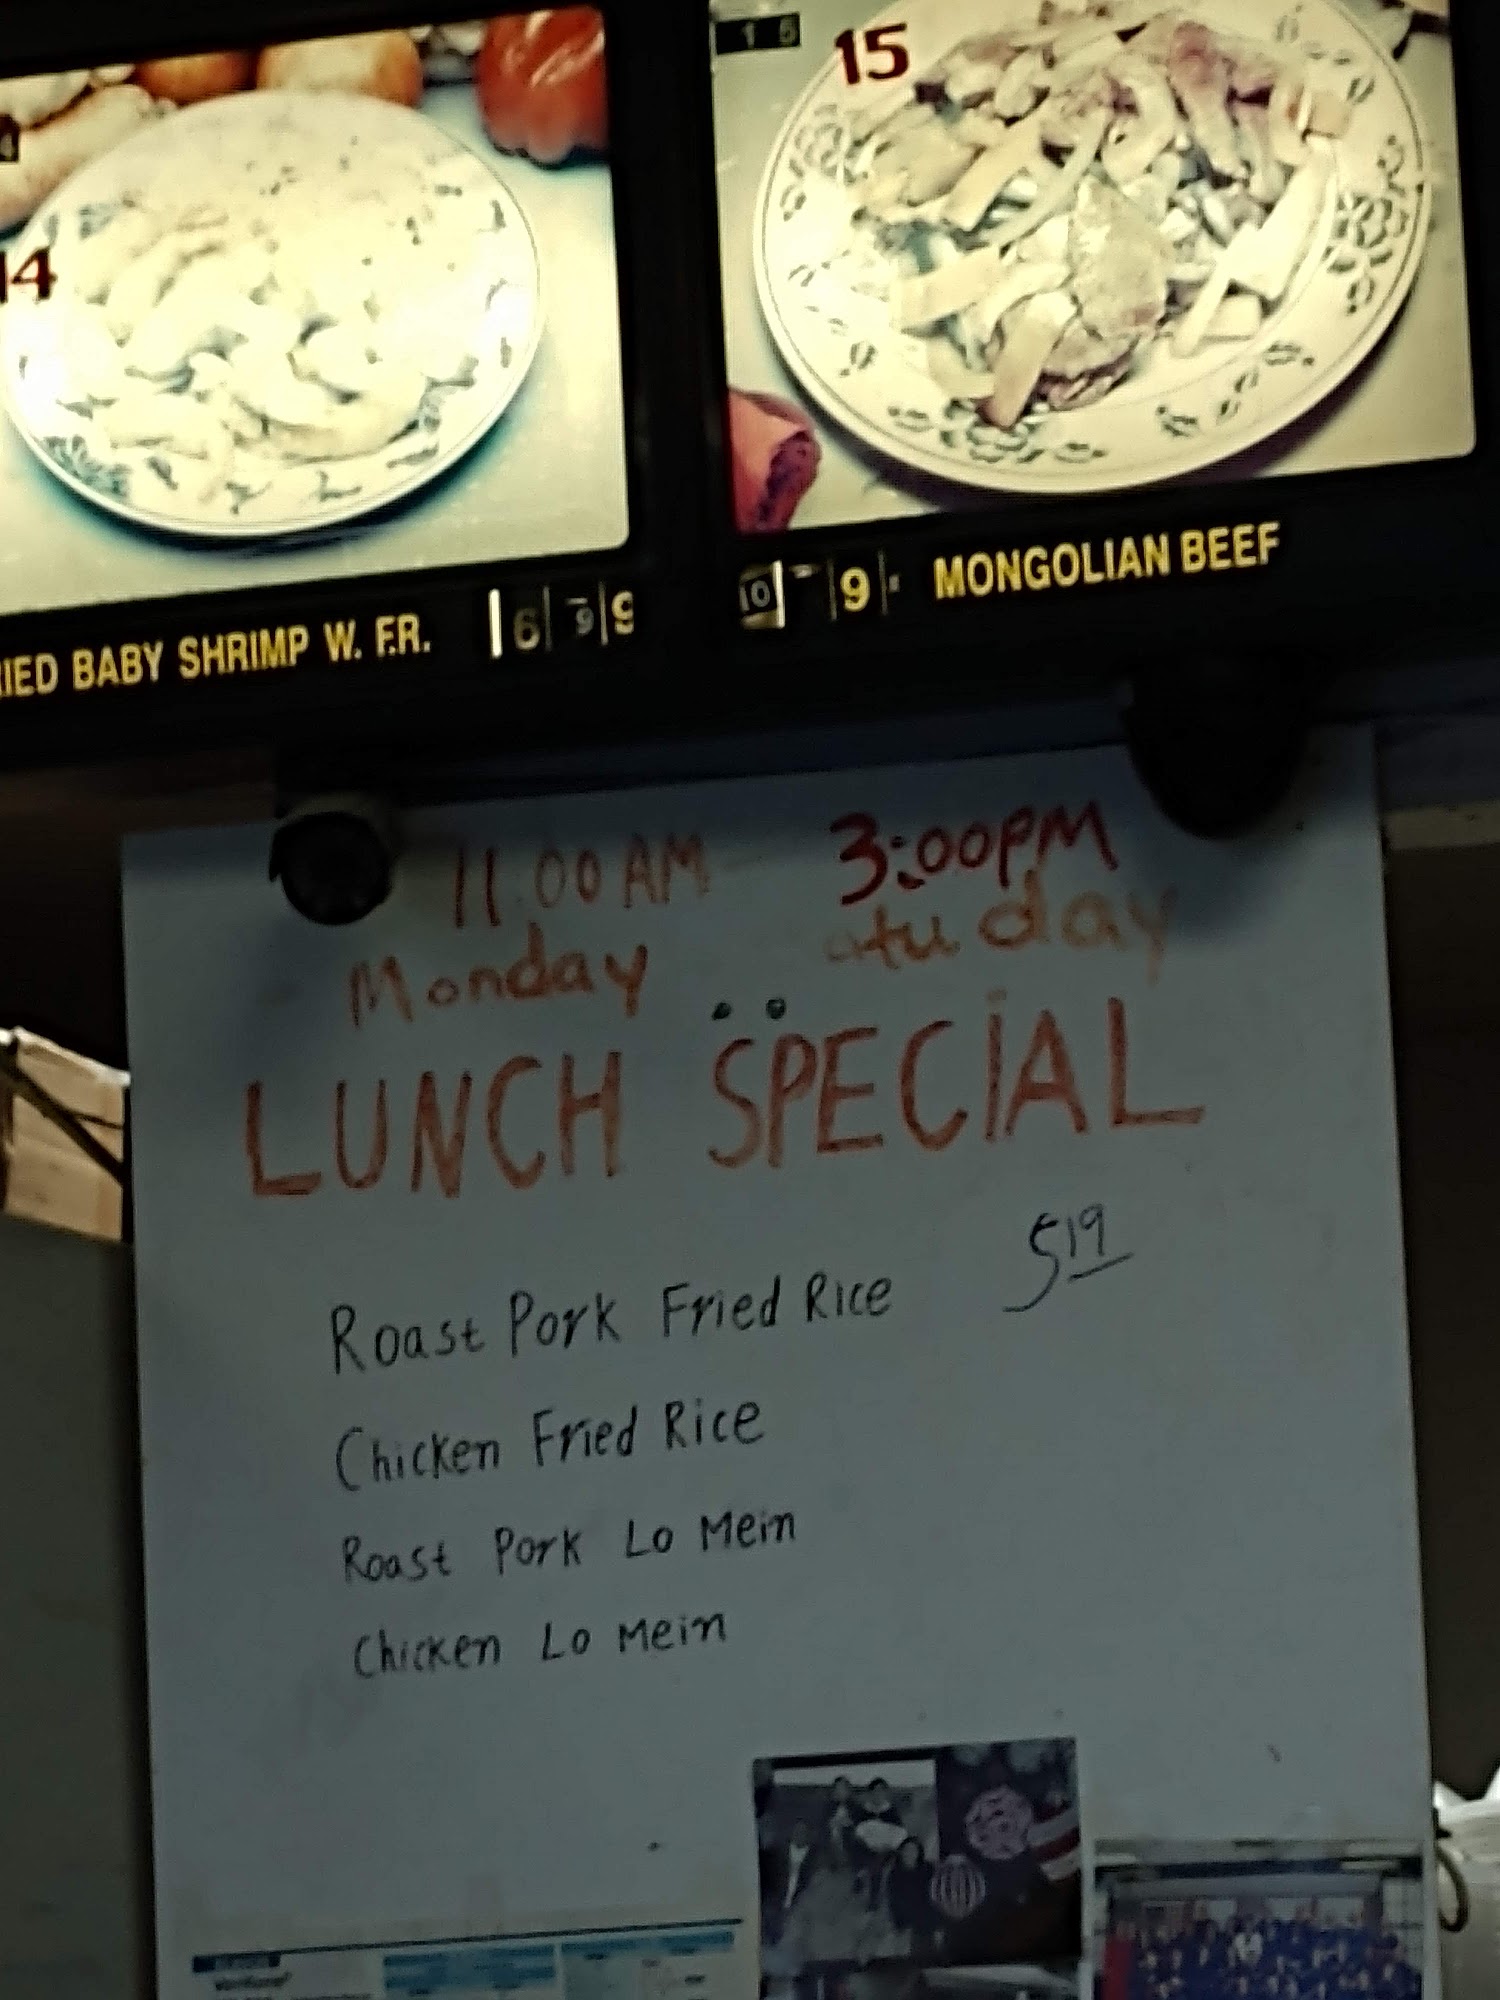 15
15
14
IED BABY SHRIMP W. F.R. 6 99
10 9 MONGOLIAN BEEF
11:00 AM 3:00PM
Monday atu day
LUNCH SPECIAL
Roast Pork Fried Rice 5 19
Chicken Fried Rice
Roast Pork Lo Mein
Chicken Lo Mein